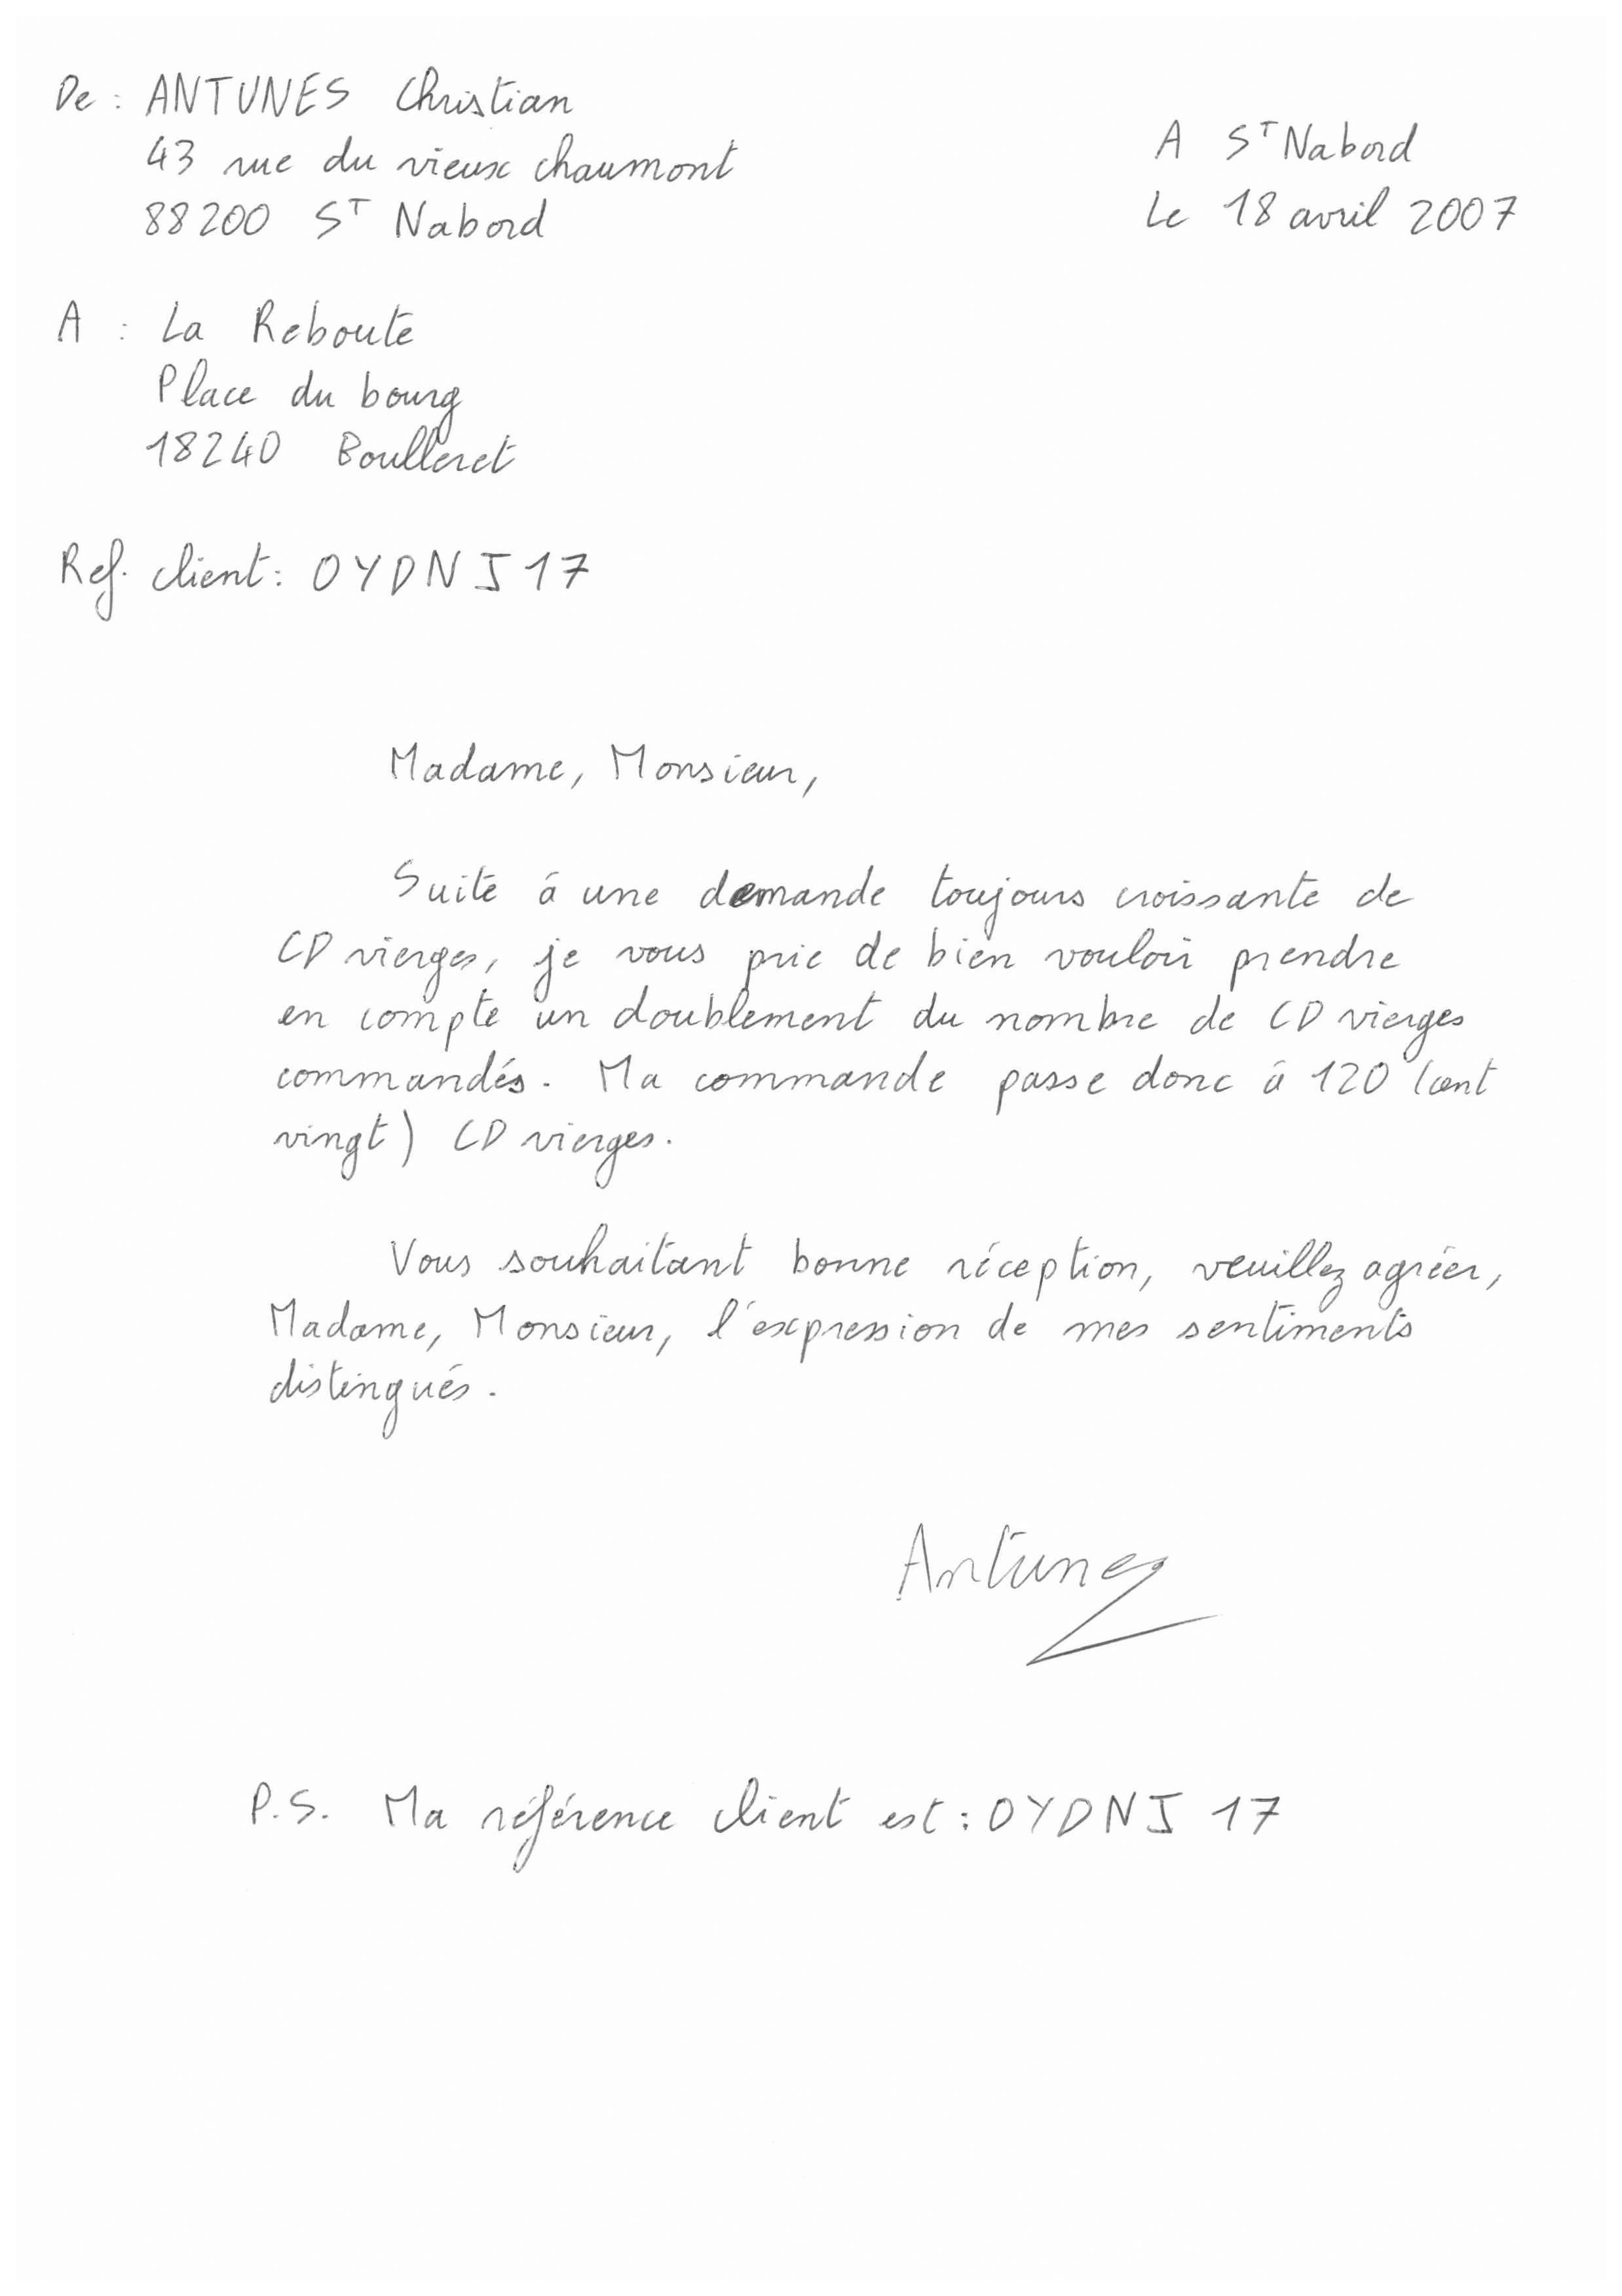 De : ANTUNES Christian
43 rue du vieux chaumont
88200 ST Nabord
A ST Nabord
Le 18 avril 2007
A : La Reboute
Place du bourg
18240 Boulleret
Ref. client : OYDNJ17
Madame, Monsieur,
Suite à une demande toujours croissante de
CD vierges, je vous prie de bien vouloir prendre
en compte un doublement du nombre de CD vierges
commandés. Ma commande passe donc à 120 (cent
vingt) CD vierges.
Vous souhaitant bonne réception, veuillez agréer,
Madame, Monsieur, l'expression de mes sentiments
distingués.
Antunes
P.S. Ma référence client est : OYDNJ 17